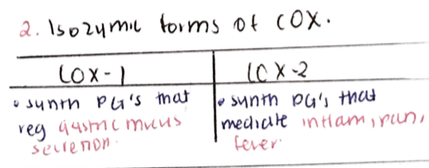 2. Isozymic forms of COX.
COX-1
COX-2
• synth PG's that
reg gastric mucus
secretion.
• synth PG's that
mediate inflam, pain,
fever.